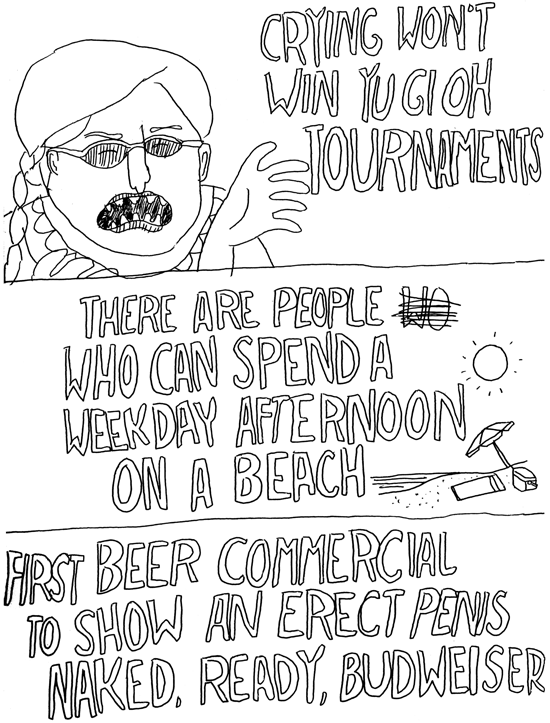 CRYING WON'T
WIN YUGIOH
TOURNAMENTS
THERE ARE PEOPLE WO
WHO CAN SPEND A
WEEKDAY AFTERNOON
ON A BEACH
FIRST BEER COMMERCIAL
TO SHOW AN ERECT PENIS
NAKED. READY, BUDWEISER